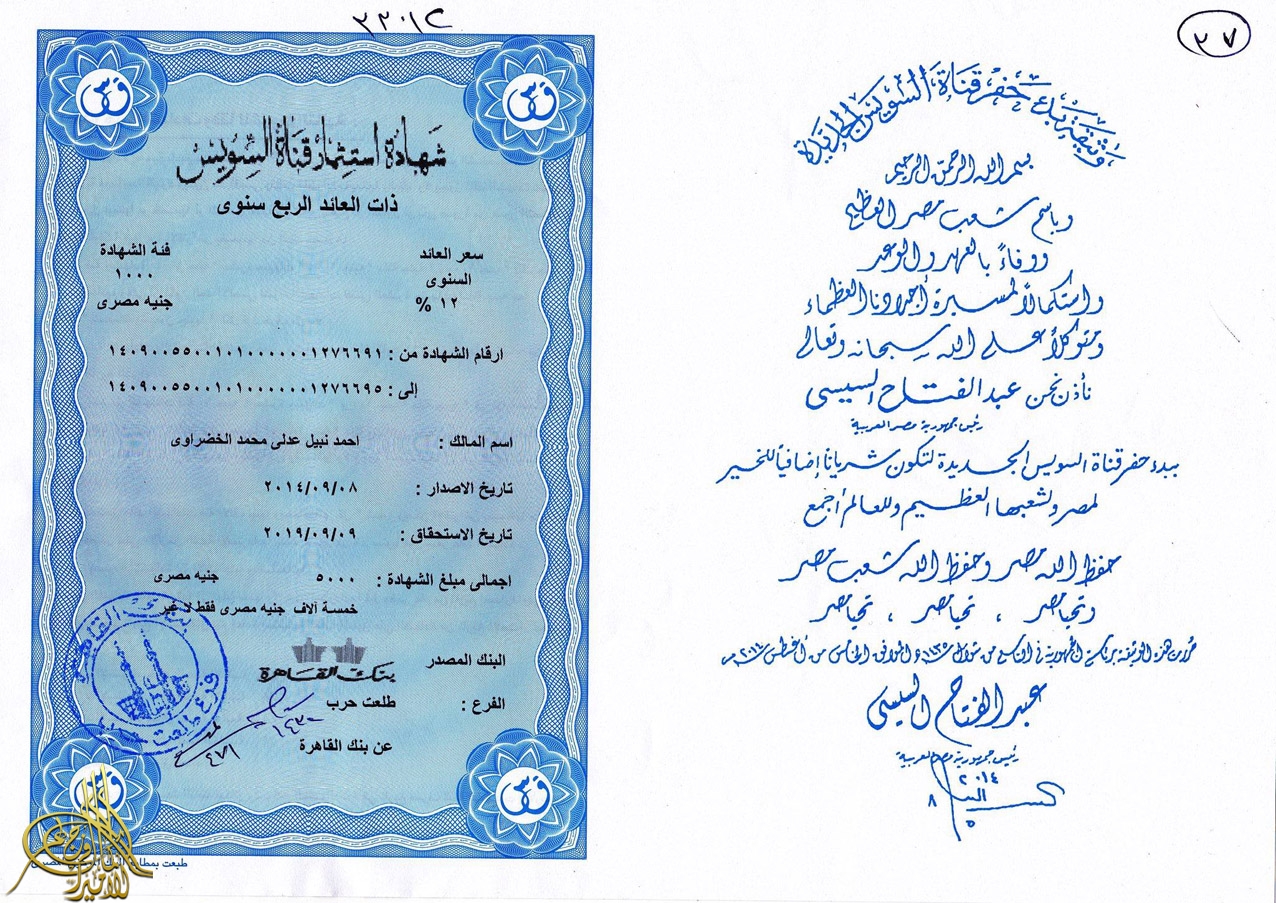 ٢٧
وثيقة بدء حفر قناة السويس الجديدة
بسم الله الرحمن الرحيم
وباسم شعب مصر العظيم
ووفاءً بالعهد والوعد
واستكمالاً لمسيرة أجدادنا العظماء
ومتوكلاً على الله سبحانه وتعالى
نأذن نحن عبد الفتاح السيسى
رئيس جمهورية مصر العربية
ببدء حفر قناة السويس الجديدة لتكون شرياناً إضافياً للخير
لمصر ولشعبها العظيم وللعالم أجمع
حفظ الله مصر وحفظ الله شعب مصر
وتحيا مصر ، تحيا مصر ، تحيا مصر
حررت هذه الوثيقة برئاسة الجمهورية فى التاسع من شوال ١٤٣٥ھ الموافق الخامس من أغسطس ٢٠١٤م
عبد الفتاح السيسى
رئيس جمهورية مصر العربية
٢٠١٤
٨
٥
شهادة استثمار قناة السويس
ذات العائد الربع سنوى
سعر العائد
السنوى
١٢ %
فئة الشهادة
١٠٠٠
جنيه مصرى
ارقام الشهادة من : ١٤٠٩٠٠٥٥٠٠١٠١٠٠٠٠٠٠٠١٢٧٦٦٩١
إلى : ١٤٠٩٠٠٥٥٠٠١٠١٠٠٠٠٠٠٠١٢٧٦٦٩٥
اسم المالك : احمد نبيل عدلى محمد الخضراوى
تاريخ الاصدار : ٢٠١٤/٠٩/٠٨
تاريخ الاستحقاق : ٢٠١٩/٠٩/٠٩
اجمالى مبلغ الشهادة : ٥٠٠٠ جنيه مصرى
خمسة آلاف جنيه مصرى فقط لا غير
البنك المصدر
بنك القاهرة
الفرع : طلعت حرب
عن بنك القاهرة
بنك القاهرة
فرع طلعت حرب
طبعت بمطابع